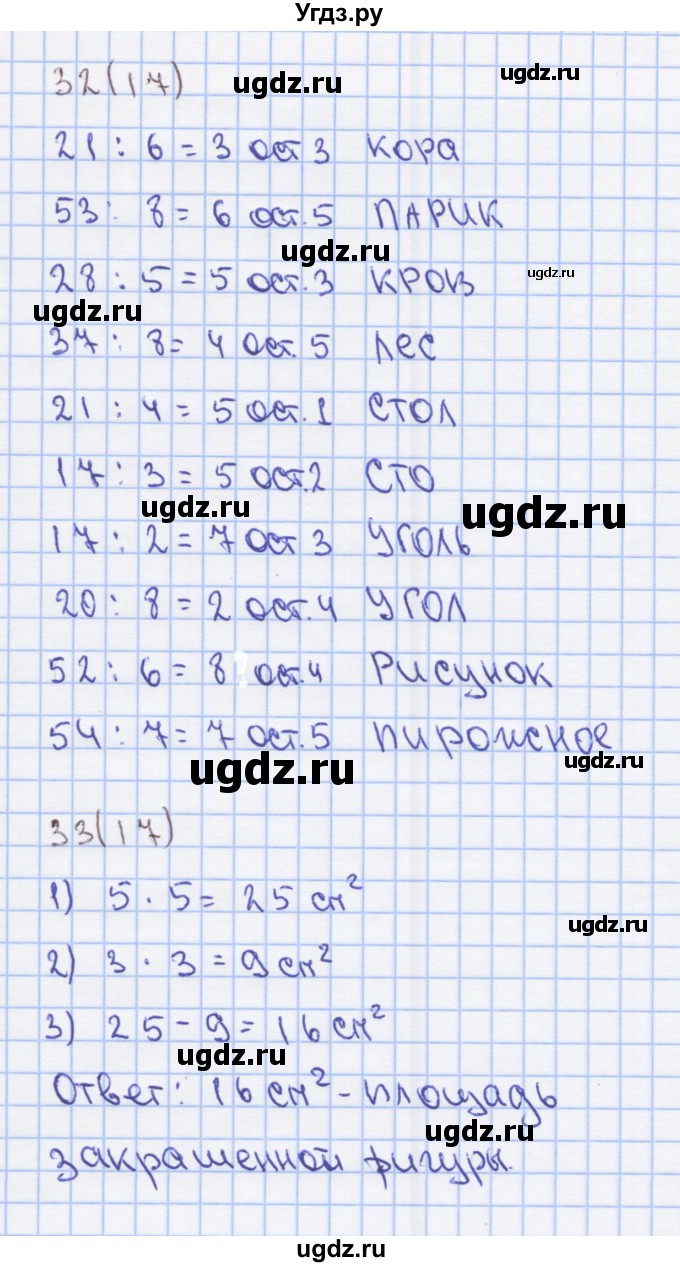 Угдз.ру
32(17) ugdz.ru ugdz.ru
21 : 6 = 3 ост 3 КОРА
53 : 8 = 6 ост. 5 ПАРИК
ugdz.ru
28 : 5 = 5 ост. 3 КРОВ ugdz.ru
ugdz.ru
37 : 8 = 4 ост. 5 ЛЕС
21 : 4 = 5 ост. 1 СТОЛ
17 : 3 = 5 ост. 2 СТО
ugdz.ru ugdz.ru
17 : 2 = 7 ост 3 УГОЛЬ
20 : 8 = 2 ост. 4 УГОЛ
52 : 6 = 8 ост. 4 РИСУНОК
54 : 7 = 7 ост. 5 ПИРОЖНОЕ
ugdz.ru ugdz.ru
33(17)
1) 5 · 5 = 25 см²
ugdz.ru
2) 3 · 3 = 9 см²
3) 25 - 9 = 16 см²
ugdz.ru
Ответ: 16 см² - площадь
ugdz.ru
закрашенной фигуры.
ugdz.ru